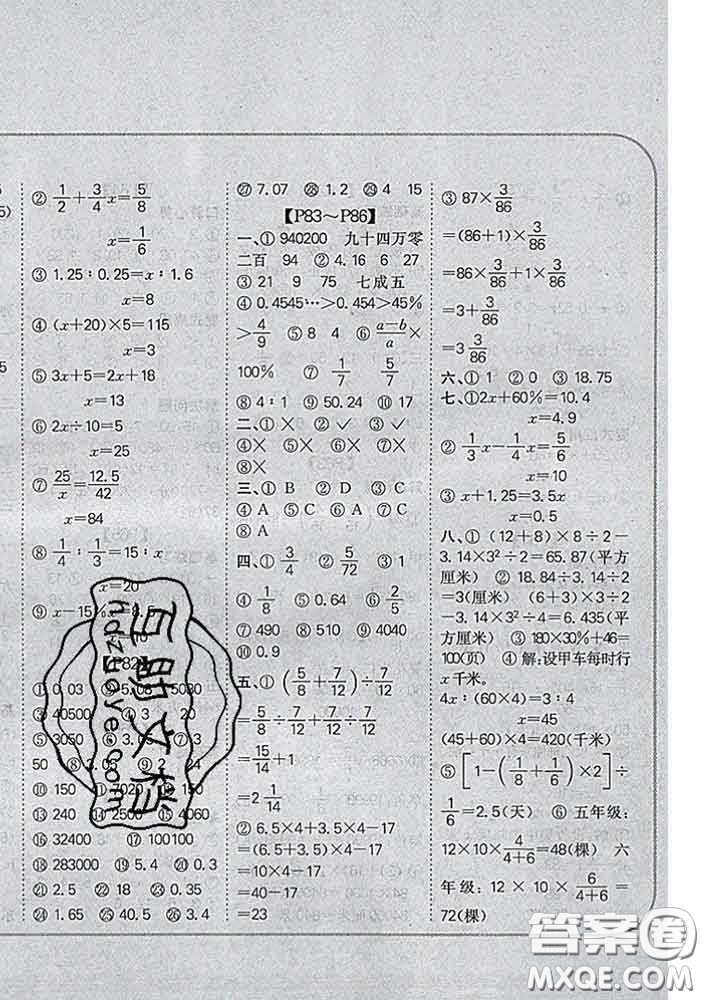 ② 1/2+3/4x=5/8
x=1/6
③ 1.25∶0.25=x∶1.6
x=8
④ (x+20)×5=115
x=3
⑤ 3x+5=2x+18
x=13
⑥ 2x÷10=5
x=25
⑦ 25/x=12.5/42
x=84
⑧ 1/4∶1/3=15∶x
x=20
⑨ x-15%x=8.5
① 0.03 ② 5.08
③ 40500 ④ 3 20
⑤ 3050 ⑥ 3.05 ⑦ 3
50 ⑧ 2.05 ⑨ 2 24
⑩ 150 ⑪ 7020 ⑫ 150
⑬ 240 ⑭ 2500 ⑮ 4060
⑯ 32400 ⑰ 100100
⑱ 283000 ⑲ 5.4 ⑳ 0.3
㉑ 2.5 ㉒ 18 ㉓ 0.35
㉔ 1.65 ㉕ 40.5 ㉖ 3.6
㉗ 7.07 ㉘ 1.2 ㉙ 4 15
【P83～P86】
一、① 940200 九十四万零
二百 94 ② 4.16 6 27
③ 21 9 75 七成五
④ 0.4545…＞0.454＞45%
＞4/9 ⑤ 8 4 ⑥ (a-b)/a×
100% ⑦ 1/7 5/7
⑧ 4∶1 ⑨ 50.24 ⑩ 17
二、①× ② ✓ ③ ✓
④× ⑤× ⑥× ⑦×
⑧×
三、① B ② D ③ C
④ A ⑤ C ⑥ A ⑦ C
⑧ A
四、① 3/4 ② 5/72 ③ 1
④ 1/8 ⑤ 0.64 ⑥ 2/5
⑦ 490 ⑧ 510 ⑨ 4040
⑩ 0.9
五、① (5/8+7/12)÷7/12
=5/8÷7/12+7/12÷7/12
=15/14+1
=2 1/14
② 6.5×4+3.5×4-17
=(6.5+3.5)×4-17
=10×4-17
=40-17
=23
③ 87×3/86
=(86+1)×3/86
=86×3/86+1×3/86
=3+3/86
=3 3/86
六、① 1 ② 0 ③ 18.75
七、①2x+60%=10.4
x=4.9
② 1/3x-1/4x=5/6
x=10
③ x+1.25=3.5x
x=0.5
八、① (12+8)×8÷2-
3.14×3²÷2=65.87(平方
厘米) ② 18.84÷3.14÷2
=3(厘米) (6+6)×3÷2
-3.14×3²÷4=6.435(平方
厘米) ③ 180×30%+46=
100(页) ④ 解:设甲车每时行
x千米。
4x∶(60×4)=3∶4
x=45
(45+60)×4=420(千米)
⑤ [1-(1/8+1/6)×2]÷
1/6=2.5(天) ⑥ 五年级:
12×10×4/(4+6)=48(棵) 六
年级: 12×10×6/(4+6)=
72(棵)
互助文档
hdzuoye.com
答案圈
MXQE.COM